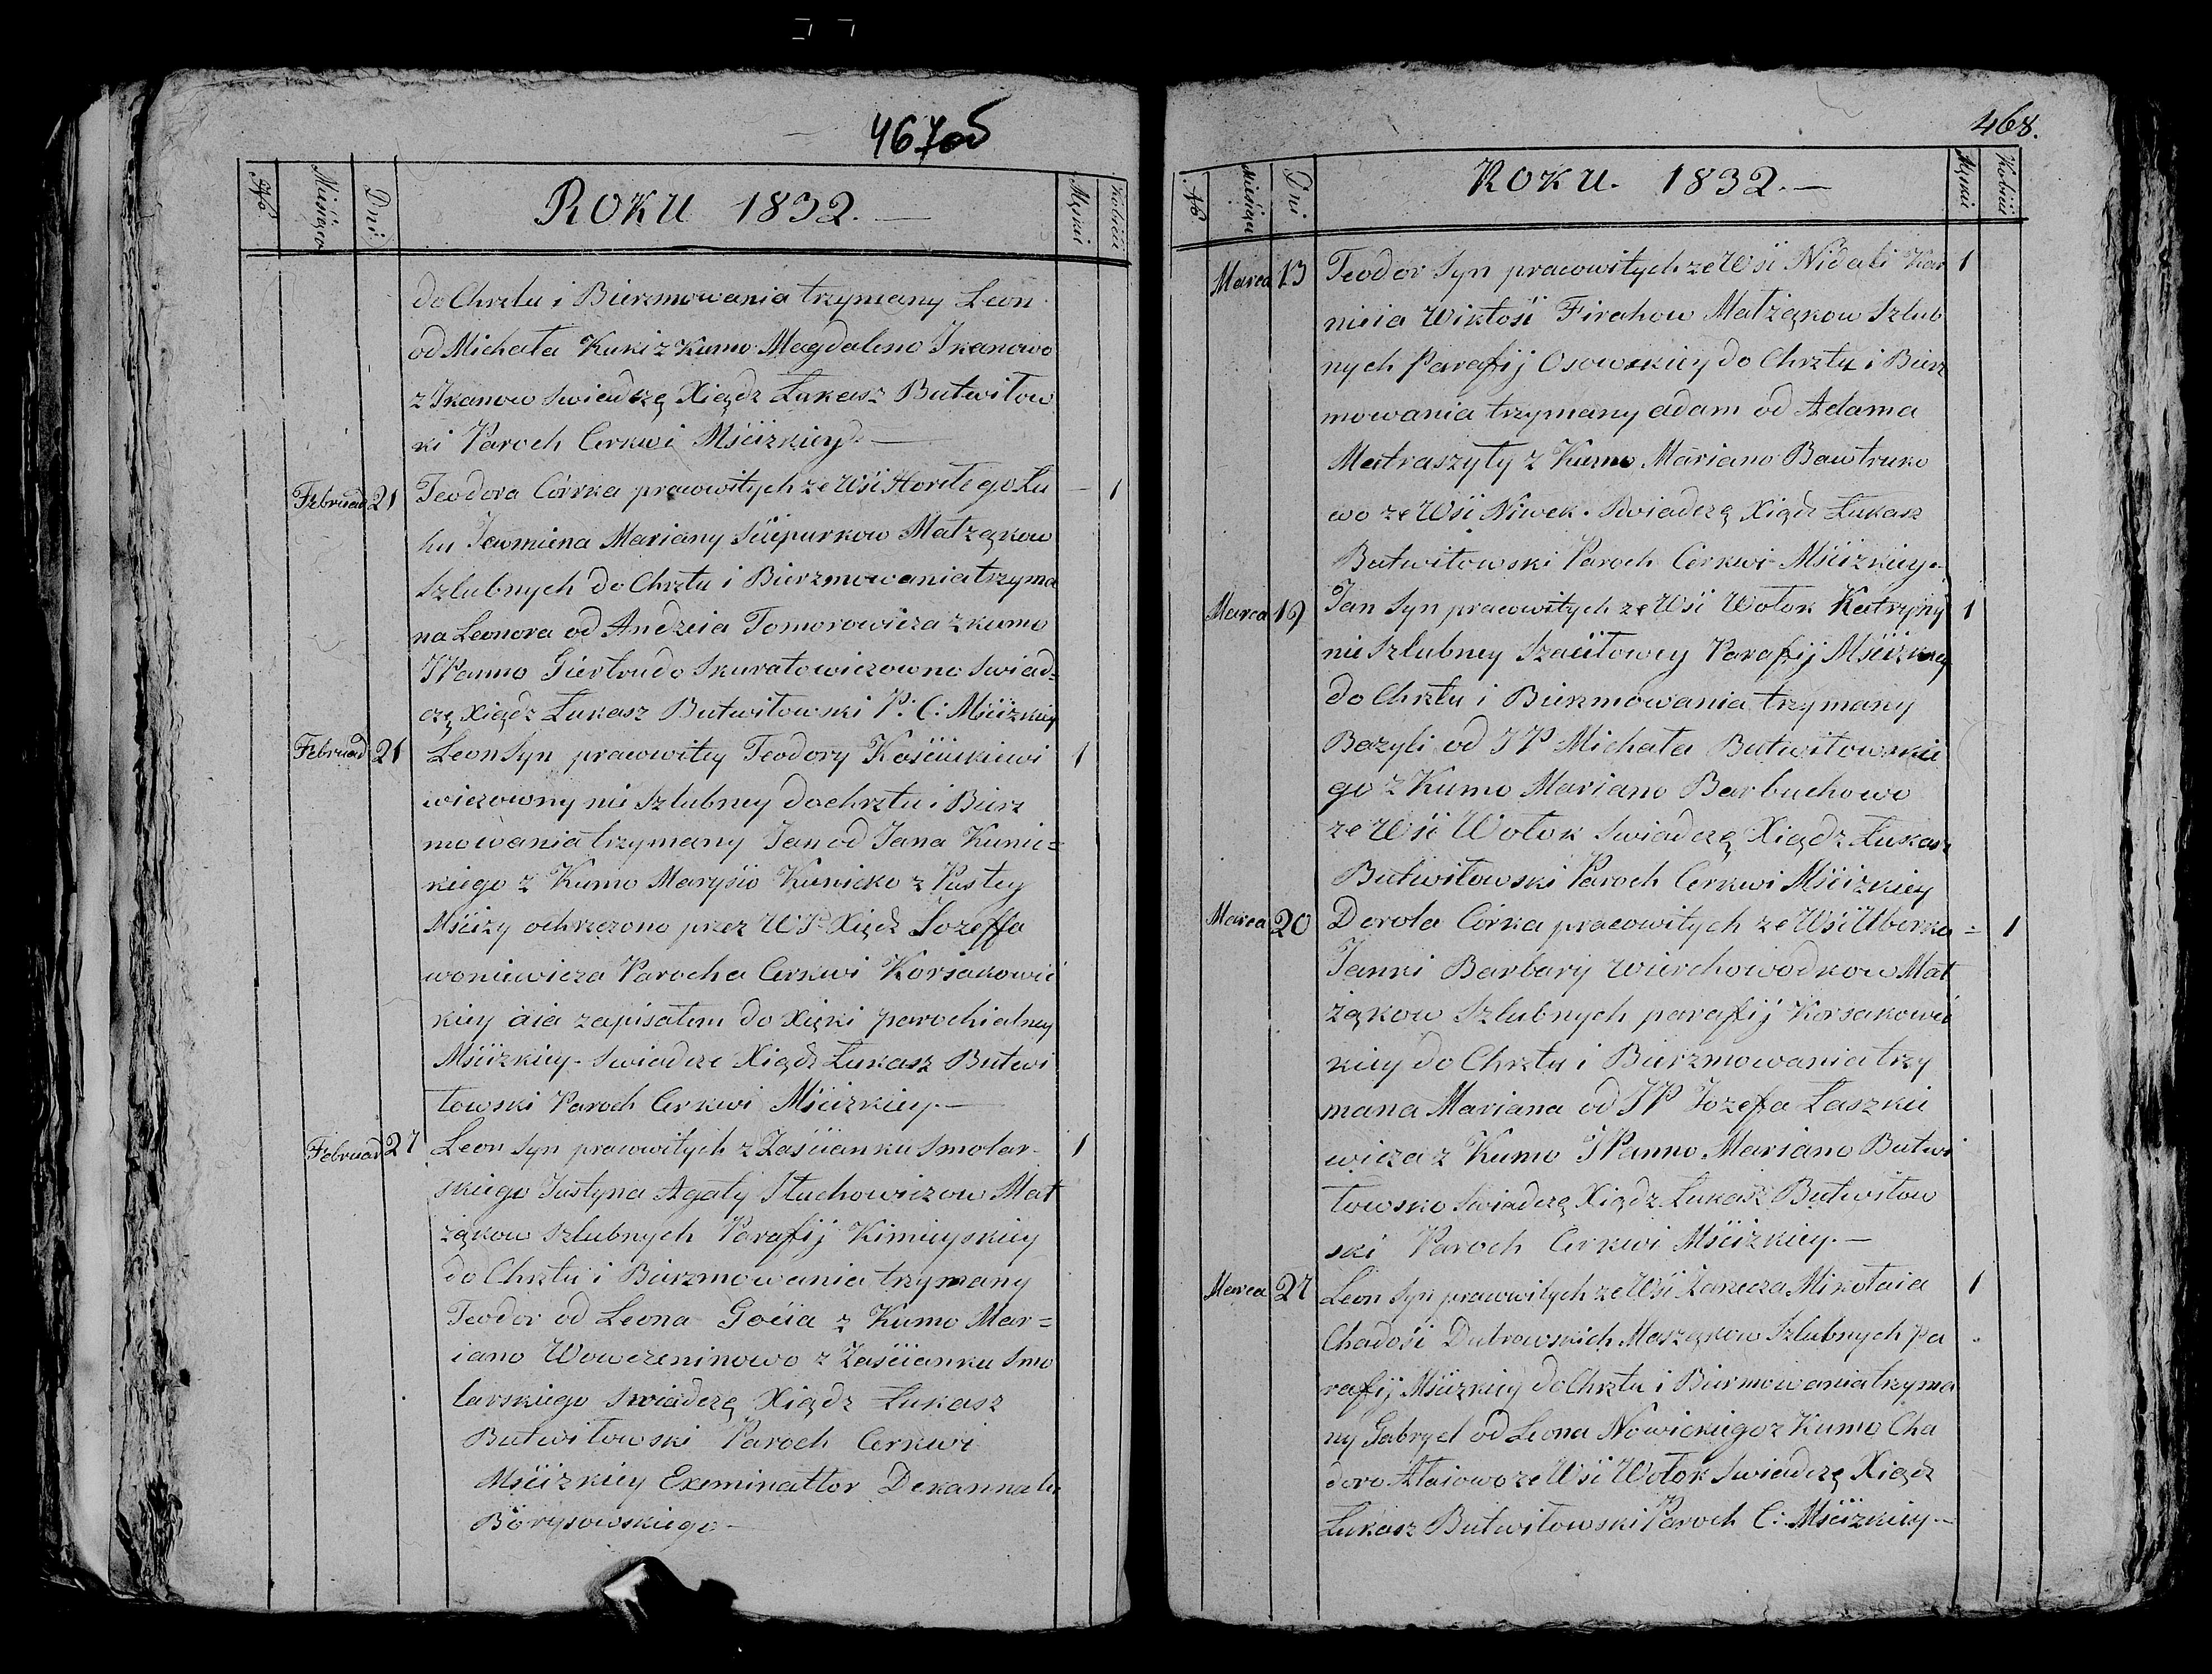 467об
№ Miesięca Dni ROKU 1832. — Męskie Kobiéce
do Chrztu i Bierzmowania trzymany Leon
od Michała Kuki z Kumo Magdaleno Ikanowo
z Ikanow swiadczę Xiądz Łukasz Butwiłow
ki Paroch Cerkwi Mścizkiey. —
Februar 21 Teodora Córrka pracowitych ze Wsi Horełego Łu — 1
hu Jewmiena Maryany Sciepurkow Małżąkow
Szlubnych do Chrztu i Bierzmowania trzyma
na Leonora od Andzeia Tomorowicza z kumo
JPanno Giertrudo Skuratowiczowno Swiad-
czę Xiądz Łukasz Butwiłowski P: C: Mścizkiey
Februar 21 Leon Syn pracowitey Teodory Kościukiewi 1
wiczowny nie szlubney do chrztu i Bierz
mowania trzymany Jan od Jana Kunic=
kiego z Kumo Marysio Kunicko z Pustey
Mścizy ochrzczono przez WJP Xiędz Jozeffa
woniewicza Parocha Cerkwi Korsakowic
kiey áia zapisałem do Xięki parochialney
Mścizkiey - Swiadcze Xiądz Łukasz Butwi
łowski Paroch Cerkwi Mścizkiey. —
Februar 27 Leon Syn pracowitych z Zaścianku Smolar- 1
skiego Justyna Agaty Słuchowiczow Mał
żąkow szlubnych Parafij Kimieyskiey
do Chrztu i Bierzmowania trzymany
Teodor od Leona Gocia z Kumo Mar=
iano Wowczeninowo z Zaścianku Smo
larskiego swiadczę Xiądz Łukasz
Butwiłowski Paroch Cerkwi
Mścizkiey Exeminattor Dekannatu
Borysowskiego —
468.
№ Miesięca Dni ROKU. 1832. — Męskie Kobiéce
Marca 13 Teodor Syn pracowitych ze Wsi Nidali Kar 1
nieia Wiktosi Firahow Małżąkow Szlub
nych Parafij Osowskiey do Chrztu i Bierz
mowania trzymany adam od Adama
Matraszyły z Kumo Mariano Bawtruko
wo ze Wsi Niwek. Swiadczę Xiądz Łukasz
Butwiłowski Paroch Cerkwi Mścizkiey.
Marca 19 Jan Syn pracowitych ze Wsi Wołok Katrzyny 1
nie Szlubney Szaciłowey Parafij Mścizkiey
do Chrztu i Bierzmowania trzymany
Bazyli od JP Michała Butwiłowskie
go z Kumo Mariano Barbuchowo
ze Wsi Wołok Swiadczę Xiądz Łukasz
Butwiłowski Paroch Cerkwi Mścizkiey
Marca 20 Dorota Córka pracowitych ze Wsi Uborka = 1
Janki Barbary Wierchowodkow Mał
żąkow Szlubnych parafij Korsakowic
kiey do Chrztu i Bierzmowania trzy
mana Mariana od JP Jozefa Łaszkie
wicza z Kumo JPanno Mariano Butwi
łowsko Swiadczę Xiądz Łukasz Butwiłow
ski Paroch Cerkwi Mścizkiey. —
Marca 27 Leon Syn pracowitych ze Wsi Zarecza Mikołaia 1
Chadosi Dubrowskich Masząkow Szlubnych Pa
rafij Mścizkiey do Chrztu i Biermowania trzyma
ny Gabryel od Leona Nowickiego z Kumo Cha
doro Ataiowo ze Wsi Wołok Swiadczę Xiądz
Łukasz Butwiłowski Paroch C: Mścizkiey. —